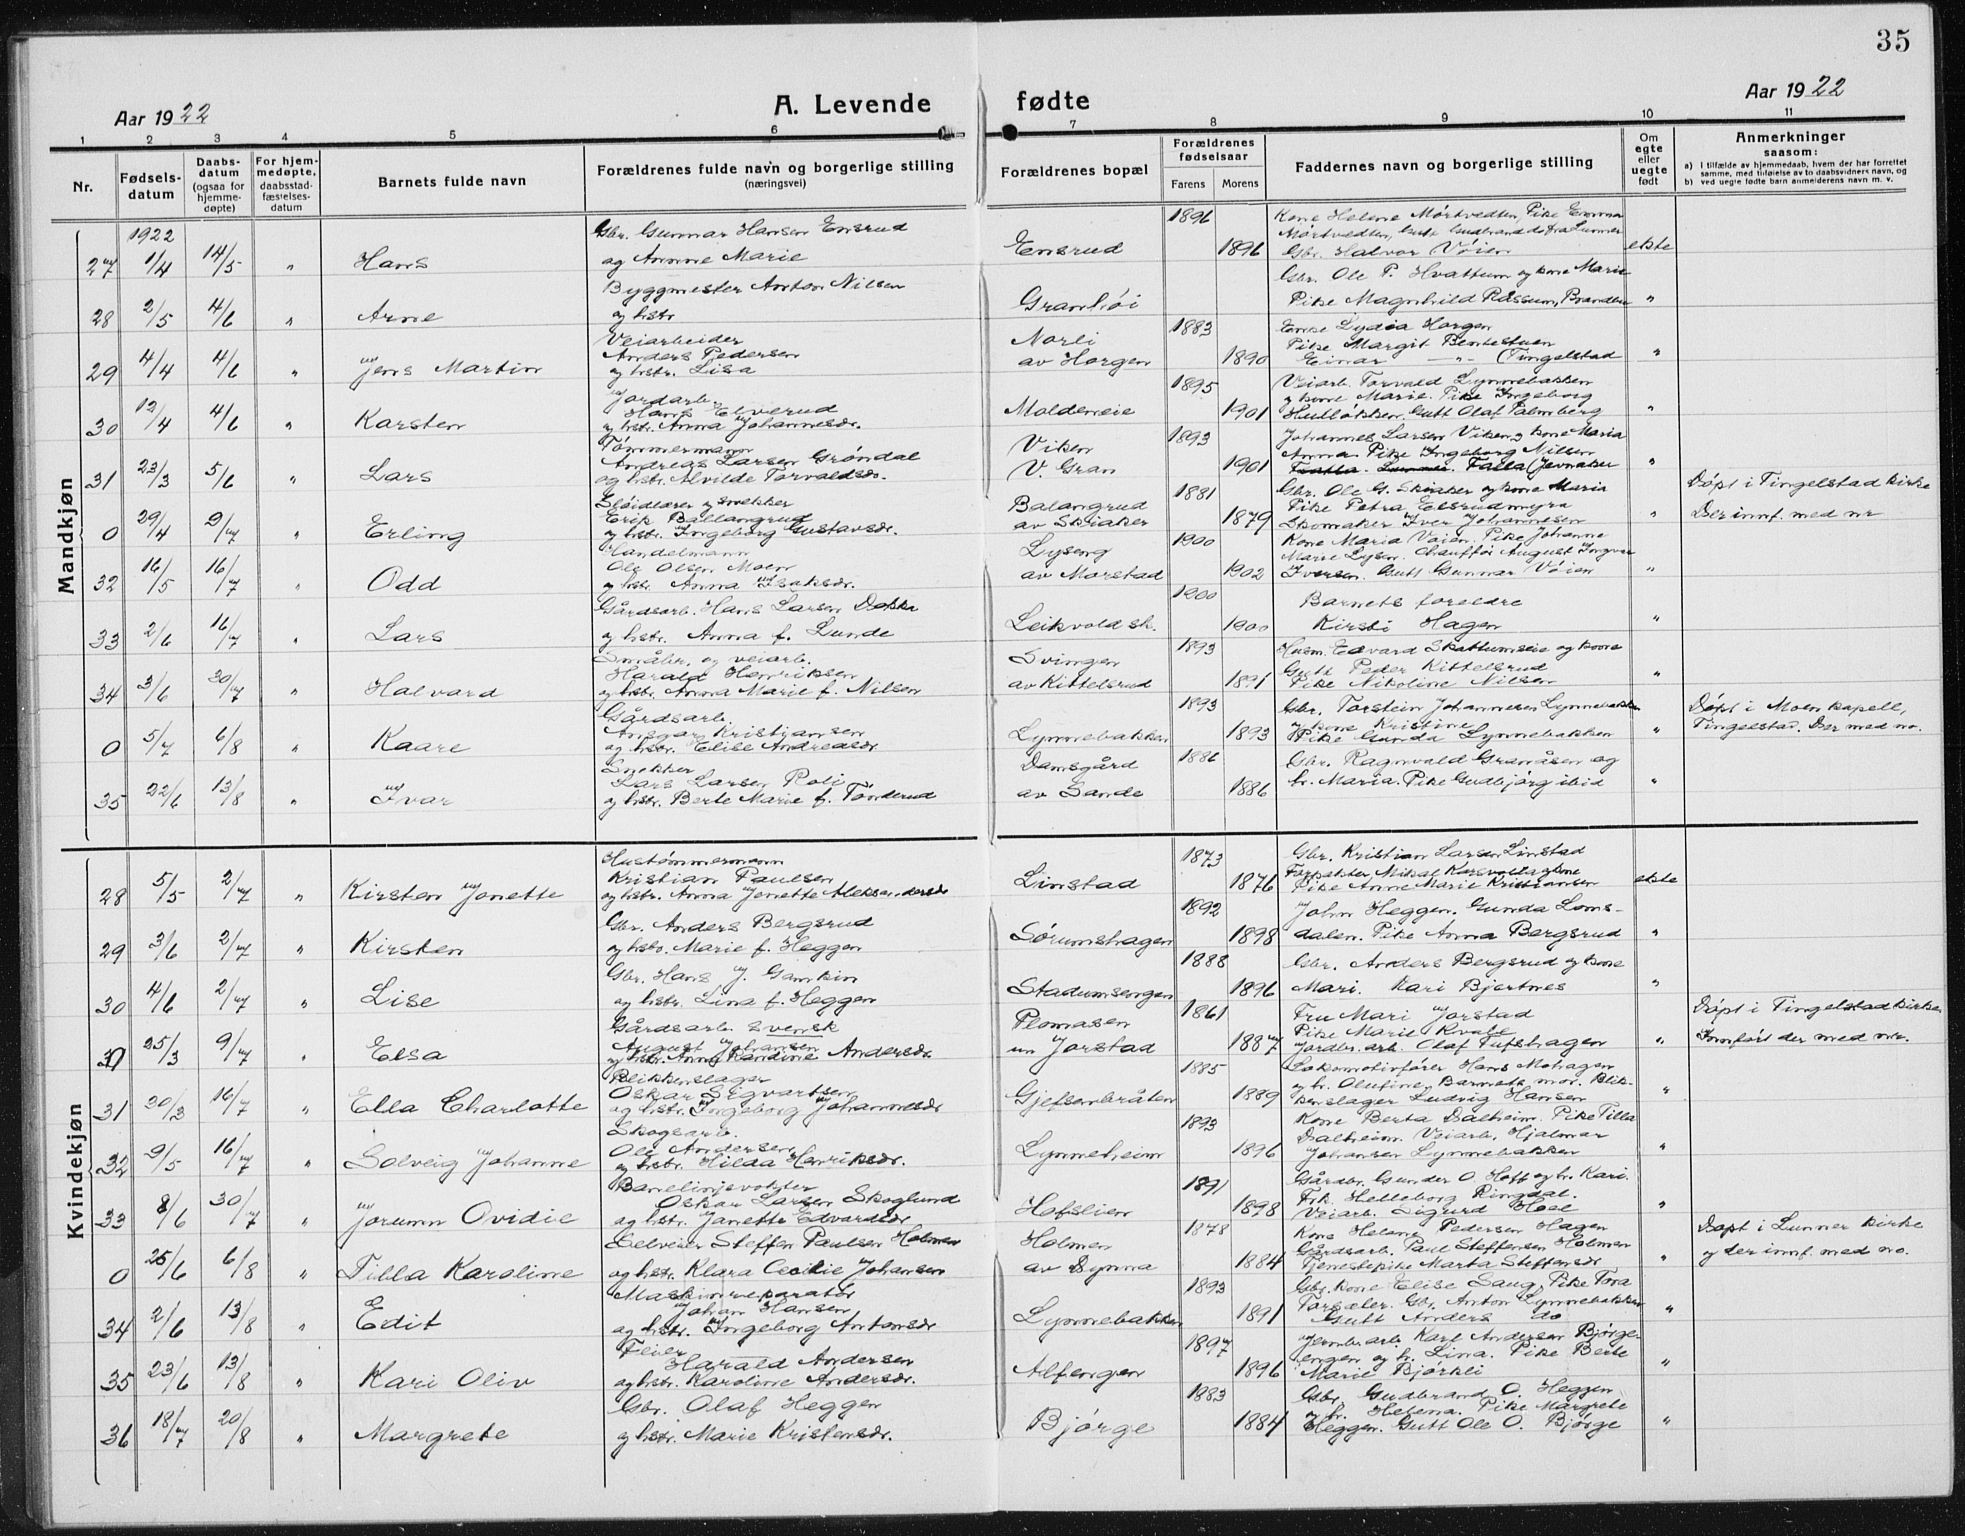 35
Aar 1922
A. Levende fødte
Aar 1922
1 2 3 4 5 6 7 8 9 10 11
Nr.
Fødsels-
datum
Daabs-
datum
(ogsaa for
hjemme-
døpte)
For hjem-
medøpte,
daabsstad-
fæstelses-
datum
Barnets fulde navn
Forældrenes fulde navn og borgerlige stilling
(næringsvei)
Forældrenes bopæl
Forældrenes
fødselsaar
Farens Morens
Faddernes navn og borgerlige stilling
Om
egte
eller
uegte
født
Anmerkninger
saasom:
a) I tilfælde av hjemmedaab, hvem der har forrettet
samme, med tilføielse av to daabsvidners navn, og
b) ved uegte fødte barn anmelderens navn m. v.
Mandkjøn
1922
27 1/4 14/5 " Hans
Gbr. Gunnar Hansen Ensrud
og Anne Marie
Ensrud
1896 1896
Kone Helene Mørtvedten, Pike Emma
Mørtvedten, Gutt Gudbrand do fra Lunner
Gbr. Halvor Vøien
ekte
28 2/5 4/6 " Arne
Byggmester Anton Nilsen
og hstr
Granhøi
Gbr. Ole P. Hvattum og kone Marie
Pike Magnhild Røssum, Brandbu "
29 4/4 4/6 " Jens Martin
Veiarbeider
Anders Pedersen
og hstr. Lisa
Norli
av Horgen
1883 1890
Enke Lydia Horgen
Pike Margit Bentestuen
Einar —"— (Tingelstad "
30 12/4 4/6 " Karsten
Jordarb.
Hans Elverud
og hstr. Anna Johannesdr.
Moldeneie
1895 1901
Veiarb. Torvald Lynnebakken
og kone Marie. Pike Ingeborg
Hulløkken, Gutt Olaf Palmberg "
31 23/3 5/6 " Lars
Tømmermann
Andreas Larsen Grøndal
og hstr. Alvilde Torvaldsdr.
Viken
V. Gran
1893 1901
Johannes Larsen Viken og kone Maria
Anna. Pike Ingeborg Nilsen
Falla (Jevnaker "
0 29/4 9/7 " Erling
Sløidlærer og snekker
Erik Ballangrud
og hstr. Ingeborg Gustavsdr.
Balangrud
av Skiaker
1881 1879
Gbr. Ole G. Skiaker og kone Maria
Pike Petra Elsrudmyra
Skomaker Iver Johannesen "
Døpt i Tingelstad kirke
Der innf. med nr
32 16/5 16/7 " Odd
Handelmann
Ole Olsen Moen
og hstr. Anna Isaksdr.
Lyseng
av Morstad
1900 1902
Kone Maria Vøien. Pike Johanne
Marie Lysen. Chauffør August Ingvar
Iversen. Gutt Gunnar Vøien "
33 2/6 16/7 " Lars
Gårdsarb. Hans Larsen Dokka
og hstr. Anna f. Lunde
Leikvold sk.
1900 1900
Barnets foreldre
Kirsti Hagen "
34 3/6 30/7 " Halvard
Småbr. og veiarb.
Harald Henriksen
og hstr. Anna Marie f. Nilsen
Svingen
av Kittelsrud
1893 1891
Husm. Edvard Skattumseie og kone
Gutt Peder Kittelsrud
Pike Nikoline Nilsen "
0 5/7 6/8 " Kaare
Gårdsarb.
Ansgar Kristiansen
og hstr. Elise Andreasdr.
Lynnebakken
1893 1893
Gbr. Torstein Johannesen Lynnebakken
og kone Kristine
Pike Gunda Lynnebakken "
Døpt i Moen kapell,
Tingelstad. Der med no.
35 22/6 13/8 " Ivar
Snekker
Lars Larsen Roli
og hstr. Berte Marie f. Tønderud
Damsgård
av Sande
1886 1886
Gbr. Ragnvald Granåsen og
hr. Maria. Pike Gudbjørg ibid "
Kvindekjøn
28 5/5 2/7 " Kirsten Jonette
Hustømmermann
Kristian Paulsen
og hstr. Anna Jonette Aleksandersdr
Linstad
1873 1876
Gbr. Kristian Larsen Linstad
Forpakter Mikal Korsvolla og kone
Pike Anne Marie Kristiansen
ekte
29 3/6 2/7 " Kirsten
Gbr. Anders Bergsrud
og hstr. Marie f. Heggen
Sørumshagen
1892 1898
John Heggen. Gunda Loms-
dalen. Pike Anna Bergsrud "
30 4/6 2/7 " Lise
Gbr. Hans J. Gamkin
og hstr. Lina f. Heggen
Stadumsengen
1888 1896
Gbr. Anders Bergsrud og kone
Mari. Kari Bjertnes "
0 25/3 9/7 " Elsa
Gårdsarb. svensk
August Johansen
og hstr. Anna Kandine Andersdr.
Plomasen
un Jorstad
1861 1887
Fru Mari Jorstad
Pike Marie Kvale
Jordbr. arb. Olaf Tufshagen "
Døpt i Tingelstad kirke
Innført der med nr.
31 30/3 16/7 " Ella Charlotte
Blikkenslager
Oskar Sigvartsen
og hstr. Ingeborg Johannesdr
Gjefsenbråten
1885 1889
Lokomotivfører Hans Mohagen
og hr. Olufine Barnets mor. Blik-
kenslager Ludvig Hansen "
32 9/5 16/7 " Solveig Johanne
Skogsarb.
Ole Andersen
og hstr. Hilda Henriksdr.
Lynneheim
1893 1896
Kone Berta Dalheim. Pike Tilla
Dalheim. Veiarb. Hjalmar
Johansen Lynnebakken "
33 8/6 30/7 " Jorunn Ovidie
Banelinjevokter
Oskar Larsen Skoglund
og hstr. Janette Edvardsdr
Hofslien
1891 1898
Gårdbr. Gunder O. Hoff og hr. Kari.
Frk. Helleborg Ringdal.
Veiarb. Sigurd Hoel "
0 25/6 6/8 " Tilla Karoline
Selveier Steffen Paulsen Holmen
og hstr. Klara Cecilie Johansen
Holmen
av Dynna
1878 1884
Kone Helene Pedersen Hagen
Gårdsarb. Paul Steffensen Holmen
Tjenestepike Marta Steffensdr "
Døpt i Lunner kirke
og der innf. med no.
34 2/6 13/8 " Edit
Maskinreparatør
Johan Hansen
og hstr. Ingeborg Antonsdr
Lynnebakken
1893 1891
Gbr. kone Elise Saug, Pike Tora
Torsæter. Gbr. Anton Lynnebakken
Gutt Anders do "
35 23/6 13/8 " Kari Oliv
Feier
Harald Andersen
og hstr. Karoline Andersdr.
Alfengen
1897 1896
Jernb. arb. Karl Andersen Bjørge-
engen og hr. Lina. Pike Berte
Marie Bjørkli "
36 18/7 20/8 " Margrete
Gbr. Olaf Heggen
og hstr. Marie Kristensdr.
Bjørge
1883 1884
Gbr. Gudbrand O. Heggen
og hr. Helena. Pike Margrete
Heggen. Gutt Ole O. Bjørge "